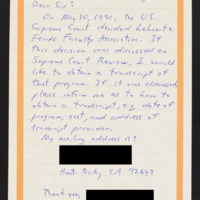 Dear Sir:
On May 30, 1991, the U.S.
Supreme Court decided Lehnert v.
Ferris Faculty Association. If
this decision was discussed on
Supreme Court Review, I would
like to obtain a transcript of
that program. If it was discussed,
please inform me as to how to
obtain a transcript, e.g. date of
program, cost, and address of
transcript provider.
My mailing address is:
Hunt. Bch, CA 92647
Thank you,